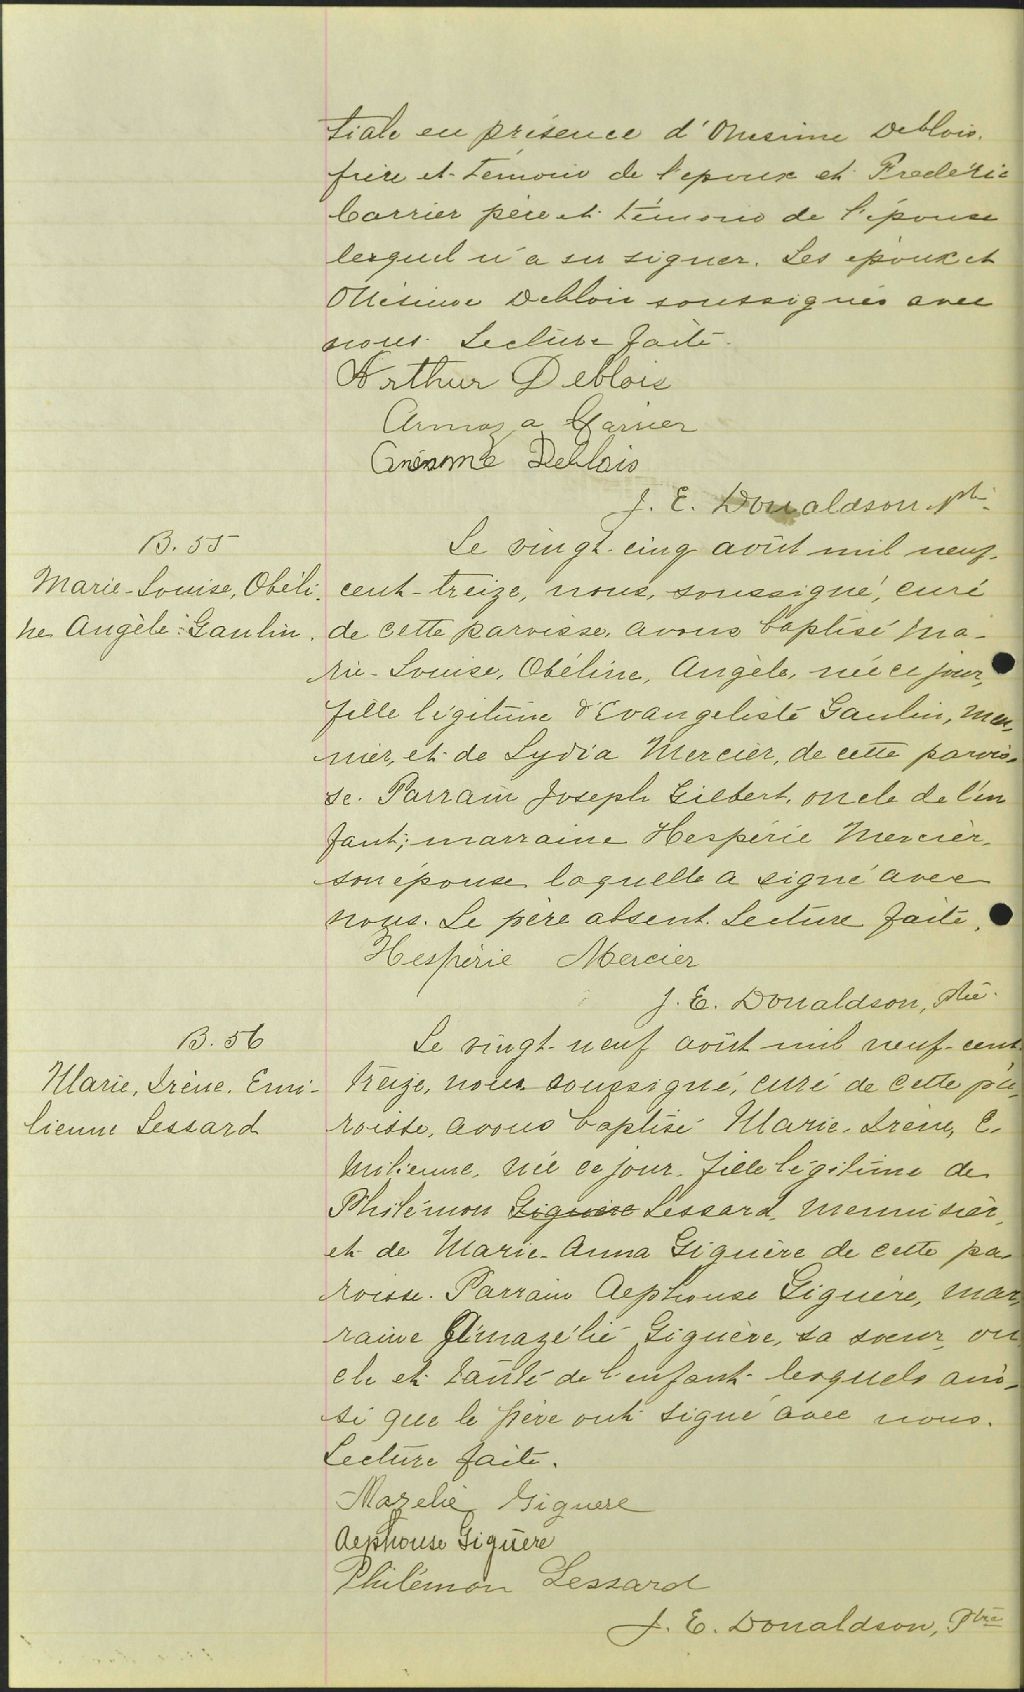 tiale en présence d'Onesime Deblois,
frère et témoin de l'epoux et Frédéric
Carrier père et témoin de l'épouse
lequel n'a su signer. Les époux et
Onésime Deblois soussignés avec
nous. Lecture faite.
Arthur Deblois
Armoza Carrier
Onésime Deblois
J. E. Donaldson, ptre.
B. 55
Marie-Louise, Obéli-
ne Angèle Gaulin.
Le vingt-cinq août mil neuf-
cent-treize, nous, soussigné, curé
de cette paroisse, avons baptisé Ma-
rie-Louise, Obéline, Angèle, née ce jour,
fille légitime d'Evangeliste Gaulin, meu-
nier, et de Lydia Mercier, de cette parois-
se. Parrain Joseph Gilbert, oncle de l'en
fant; marraine Hespérie Mercier,
son épouse laquelle a signé avec
nous. Le père absent. Lecture faite.
Hespérie Mercier
J. E. Donaldson, Ptre.
B. 56
Marie, Irène, Emi-
lienne Lessard
Le vingt-neuf août mil neuf-cent
treize, nous soussigné, curé de cette pa-
roisse, avons baptisé Marie, Irène, E-
milienne, née ce jour, fille légitime de
Philémon Giguère Lessard, menuisier,
et de Marie-Anna Giguère de cette pa-
roisse. Parrain Alphonse Giguère, mar-
raine Amazélie Giguère, sa soeur, on
cle et tante de l'enfant lesquels ain-
si que le père ont signé avec nous.
Lecture faite.
Mazelie Giguere
Alphonse Giguère
Philémon Lessard
J. E. Donaldson, Ptre